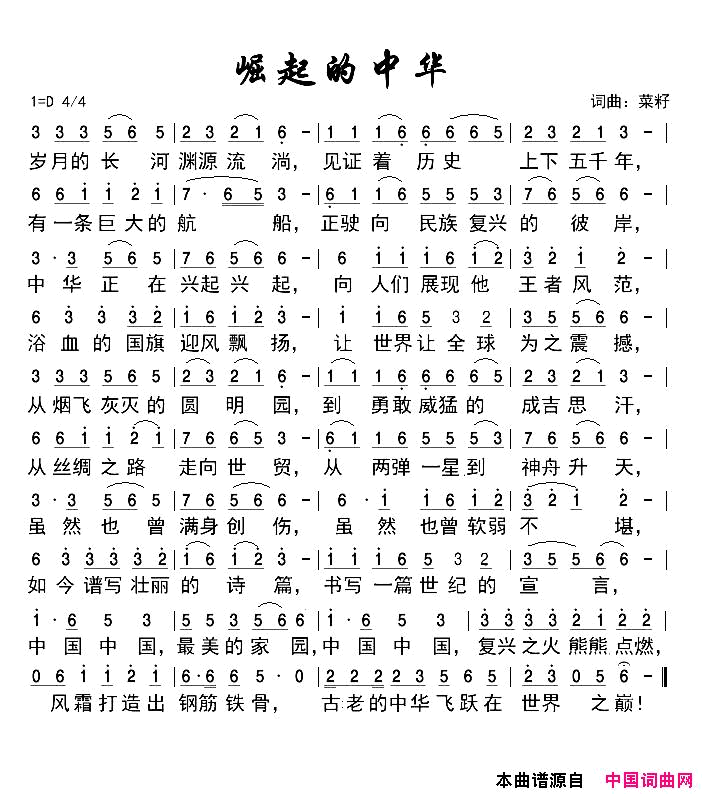 崛起的中华
1=D 4/4 词曲：菜籽
3 3 3 5 6 5 | 2 3 2 1 6 - | 1 1 1 6 6 6 6 5 | 2 2 3 2 3 - |
岁月的长 河渊源流 淌，见证着 历史 上下五千年，
6 6 1 1 2 1 | 7 · 6 5 3 - | 6 1 1 6 5 5 5 3 | 7 6 5 6 - |
有一条巨大的航 船，正驶向 民族复兴的 彼 岸，
3 · 3 5 6 5 | 7 6 5 6 5 3 - | 6 1 1 1 6 1 2 | 3 2 1 2 - |
中 华 正 在 兴起兴 起， 向 人们展现他 王者风 范，
6 3 3 3 2 | 1 6 1 2 3 - | 1 1 1 6 5 3 2 | 3 5 5 6 6 - |
浴 血 的 国旗 迎风飘 扬， 让 世界让全球 为之震 撼，
3 3 3 5 6 5 | 2 3 2 1 6 - | 1 1 6 6 6 6 5 | 2 3 2 1 3 - |
从烟飞灰灭的 圆 明 园，到 勇敢威猛的 成吉思 汗，
6 6 1 1 2 1 | 7 6 6 5 3 - | 6 1 1 6 5 5 5 3 | 7 6 5 6 - |
从丝绸之路 走向世 贸，从 两弹一星到 神舟升 天，
3 · 3 5 6 5 | 7 6 5 6 5 3 - | 6 · 1 1 6 1 2 | 3 2 1 2 - |
虽 然 也 曾 满身创 伤， 虽 然 也曾软弱 不 堪，
6 3 3 3 3 2 | 1 6 1 2 3 - | 1 1 1 6 5 3 2 | 3 5 5 6 6 - |
如今谱写壮丽 的 诗 篇，书写一篇世纪的 宣 言，
1 · 6 5 3 | 5 5 3 5 6 6 6 | 1 · 6 5 3 | 3 3 3 3 2 1 2 2 |
中 国 中 国，最美的家 园，中 国 中 国， 复兴之火熊熊点燃，
0 6 1 1 2 1 | 6 · 6 6 5 · 0 | 2 2 2 2 3 5 6 5 | 2 3 0 5 6 - ‖
风霜打造出 钢筋铁骨， 古老的中华飞跃在 世界 之巅！
本曲谱源自 中国词曲网